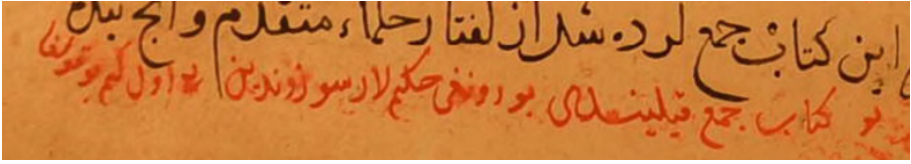 این کتاب جمع کرده شد از گفتار حکماء متقدم و آنچ
بو کتاب جمع قیلیندی بورونغی حکیم لار سوزوندین اول کیم